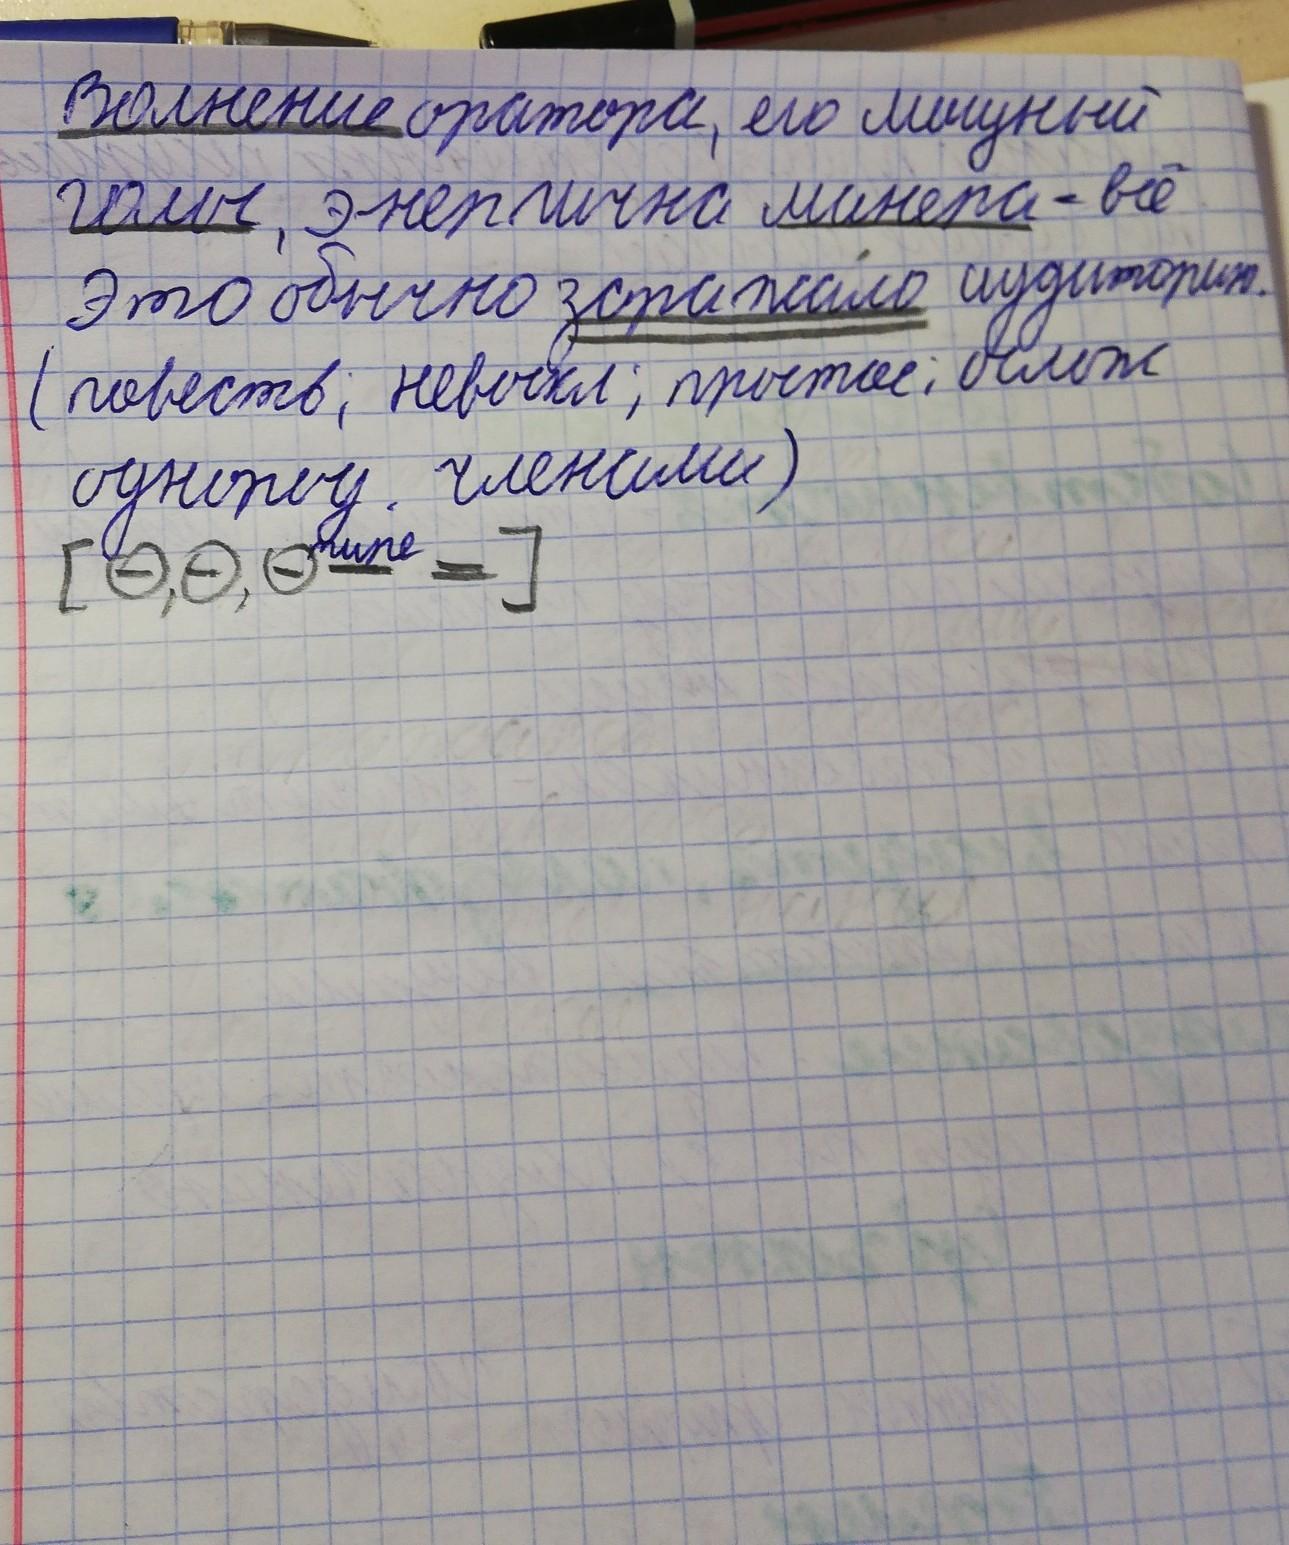 Волнение оратора, его мощный
голос, энергична манера - всё
Это обычно заражало аудиторию.
(повеств; невоскл; простое; ослож
однород. членами)
[⊖,⊖,⊖ тире — =]